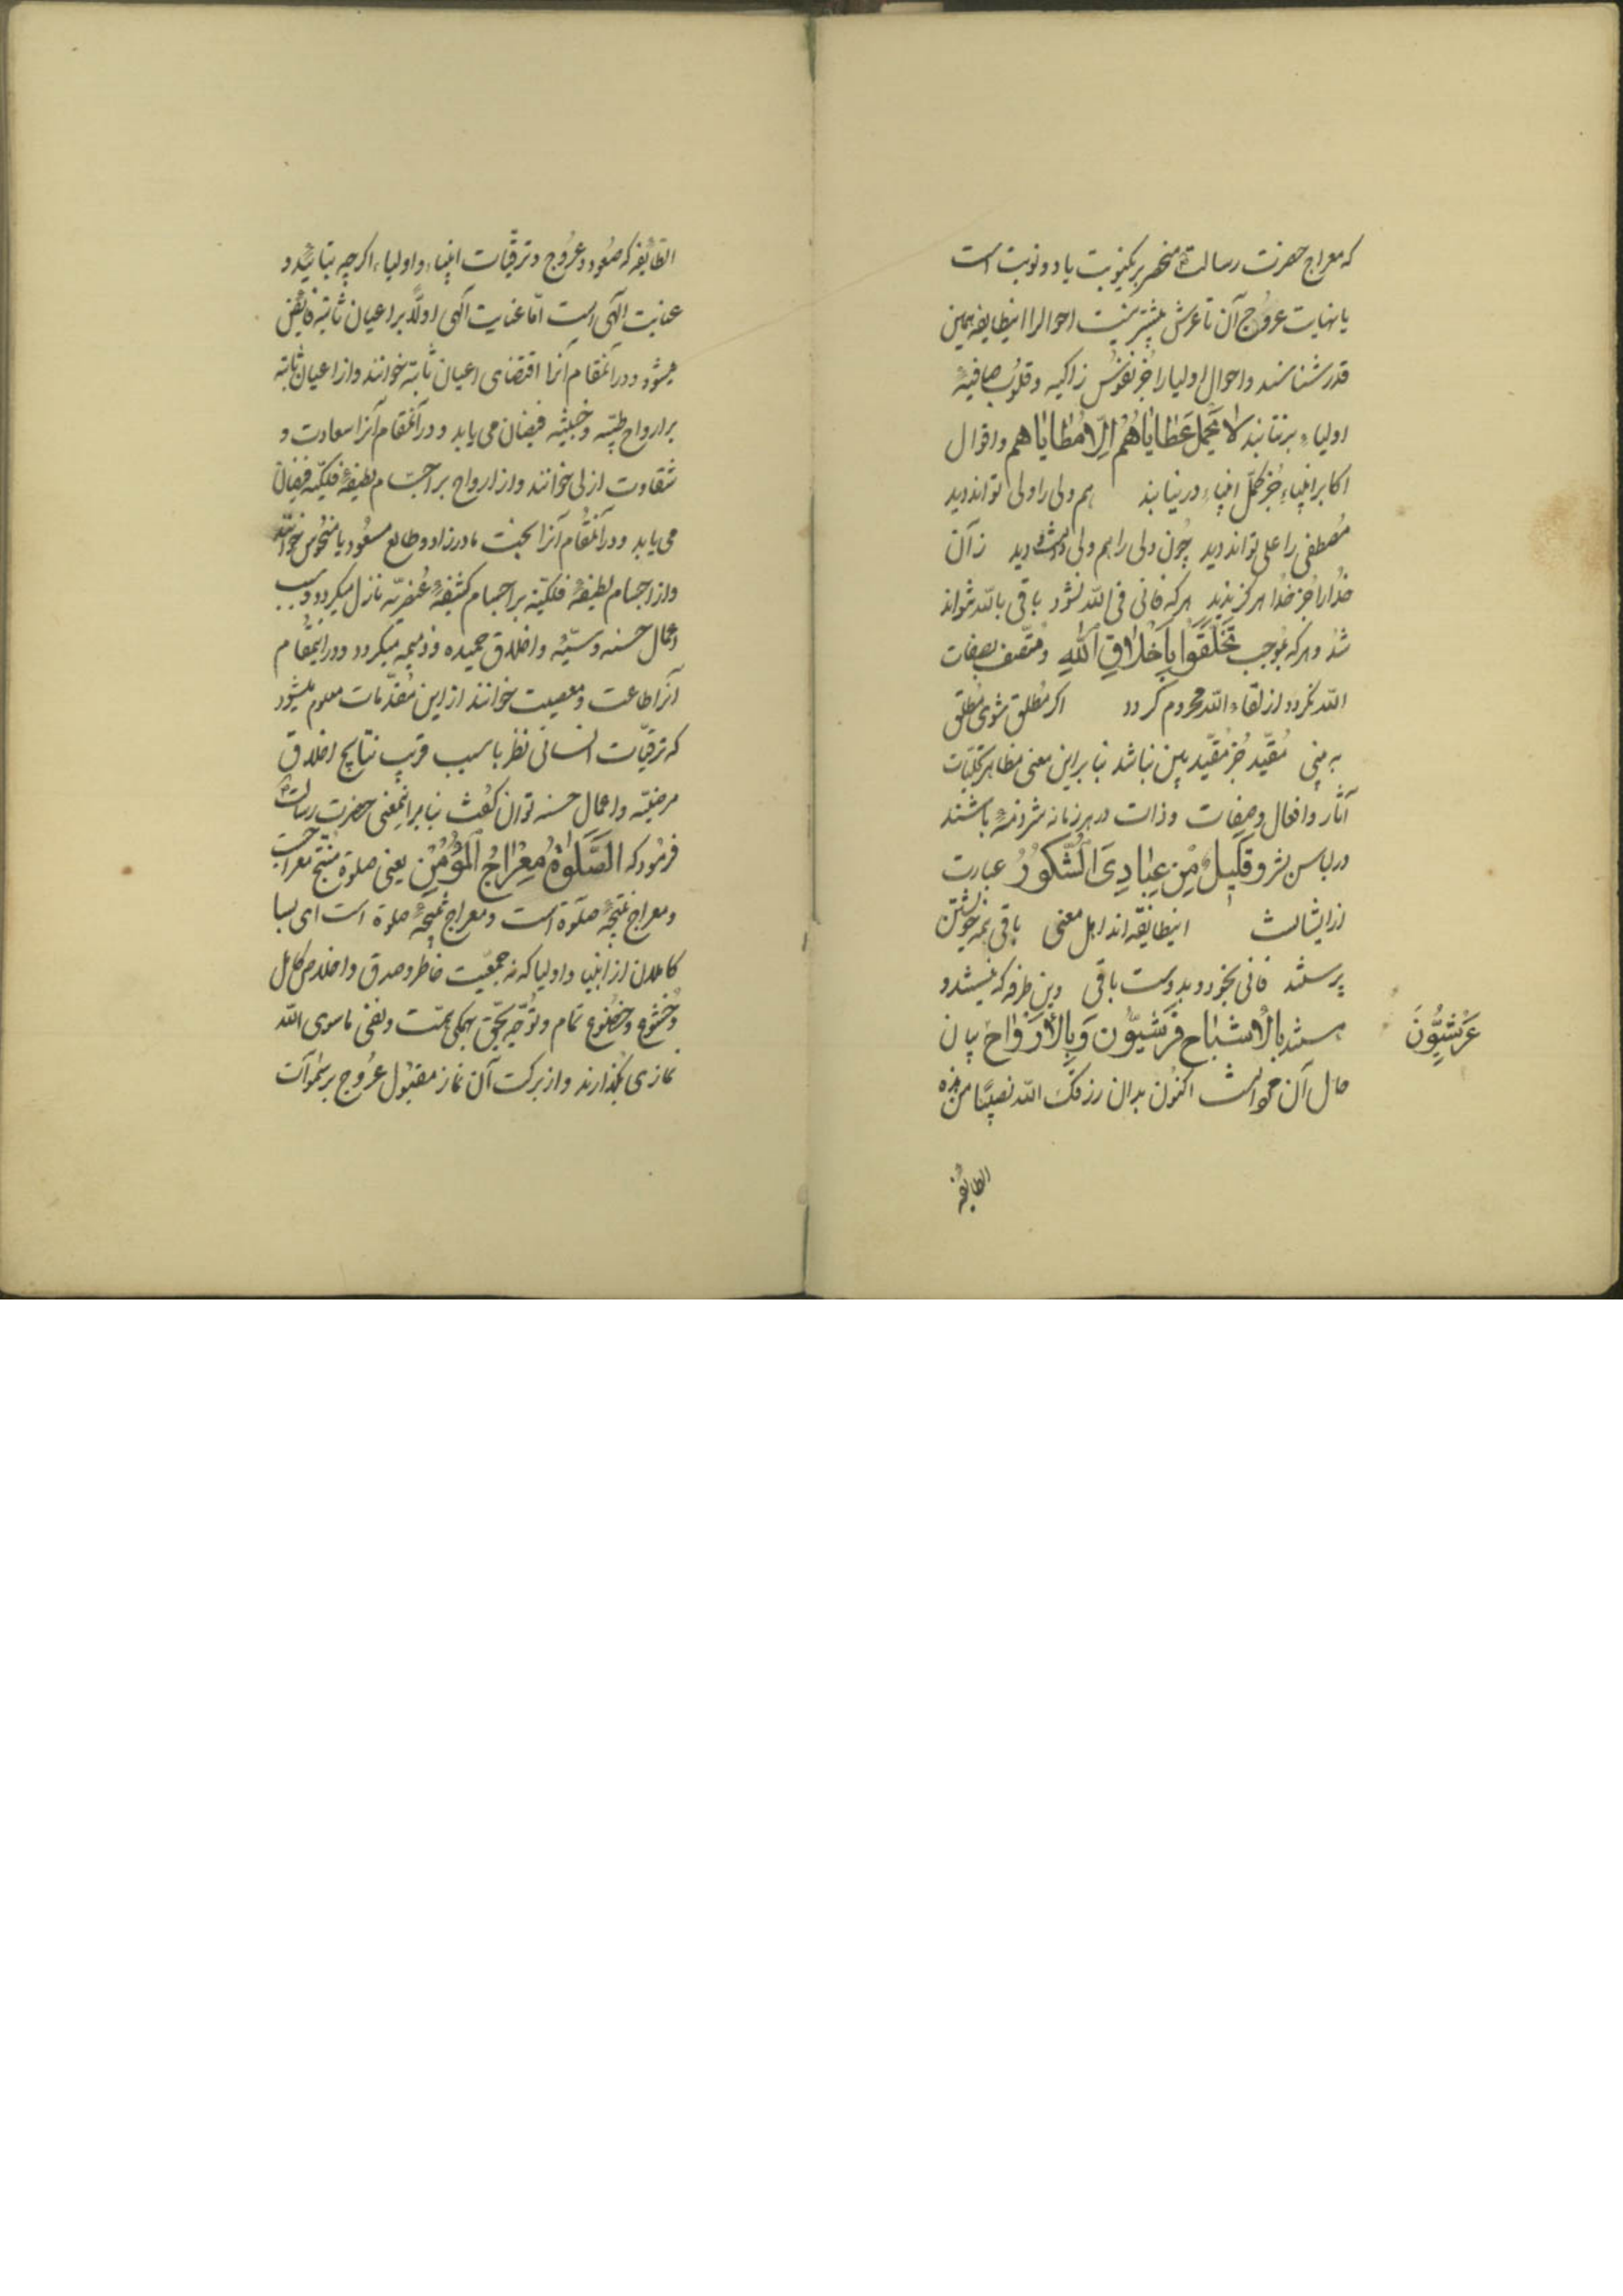 که معراج حضرت رسالت منحصر بر یکنوبت یا دو نوبت است
یا نهایت عروج آن تا عرش بیشتر نیست احوال را اینطایفه همین
قدر شناسند و احوال اولیا را جز نفوس زاکیه و قلوب صافیهٔ
اولیاء برنتابند لا تحمل عطایاهم الا مطایاهم و اقوال
اکابر انبیاء جز کمل انبیاء در نیابند هم ولی را ولی تواند دید
مصطفی را علی تواند دید چون ولی را هم ولی دید زآن
خدا را جز خدا هرگز ندید هر که فانی فی الله نشود باقی بالله نتواند
شد و هر که بموجب تَخَلَّقُوا بِأَخْلَاقِ اللهِ و متصف بصفات
الله نکردد از لقاء الله محروم کردد اکر مطلق شوی مطلق
به بینی مقید جز مقید بین نباشد بنابراین معنی مظاهر تجلیات
آثار و افعال و صفات و ذات در هر زمانه شرذمهٔ باشند
در لباس بشر و قَلِیلٌ مِنْ عِبَادِیَ الشَّکُورُ عبارت
از ایشانست اینطایفه اند اهل معنی باقی همه خویشتن
پرستند فانی بخود و بدوست باقی وین طرفه که نیستند و
هستند بالاشباح فرشیّون و بالارواح بیان
عَرْشِیُّونَ
حال آن جوانست اکنون بدان رزقک الله نصیبًا من هذه
الطایفه
الطّایفه که صعود و عروج و ترقیّات انبیاء و اولیاء اکرچه بتائید و
عنایت الهی است امّا عنایت الهی اولًا بر اعیان ثابته فایض
میشود و در آنمقام آنرا اقتضای اعیان ثابته خوانند و از اعیان ثابته
بر ارواح طیّبه و خبیثه فیضان می یابد و در آنمقام آنرا سعادت و
شقاوت ازلی خوانند و از ارواح بر اجسام لطیفهٔ فلکیّه فیضان
می یابد و در آنمقام آنرا بخت مادرزاد و طالع مسعود یا منحوس خوانند
و از اجسام لطیفهٔ فلکیّه بر اجسام کثیفهٔ عنصریّه نازل میکردد و سبب
اعمال حسنه و سیّئه و اخلاق حمیده و ذمیمه میکردد و در اینمقام
آنرا طاعت و معصیت خوانند از این مقدّمات معلوم میشود
که ترقیّات انسانی نظر باسباب قریب نتایج اخلاق
مرضیّه و اعمال حسنه توان کفت بنابر اینمعنی حضرت رسالت
فرمود که الصَّلوٰةُ مِعْرَاجُ الْمُؤْمِنِ یعنی صلوة منتج معراجست
و معراج نتیجهٔ صلوة است و معراج نتیجهٔ صلوة است ای بسا
کاملان از انبیا و اولیا که نه جمعیّت خاطر و صدق و اخلاص کامل
و خشوع و خضوع تمام و توجّه بحق بهمکی همّت و نفی ماسوی الله
نمازی بکذارند و از برکت آن نماز مقبول عروج بر سموات